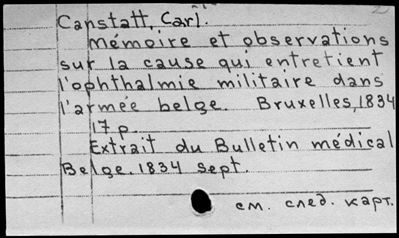 Canstatt, Carl.
Mémoire et observations
sur la cause qui entretient
l'ophthalmie militaire dans
l'armée belge. Bruxelles, 1834
17 p.
Extrait du Bulletin médical
Belge. 1834 sept.
см. след. карт.